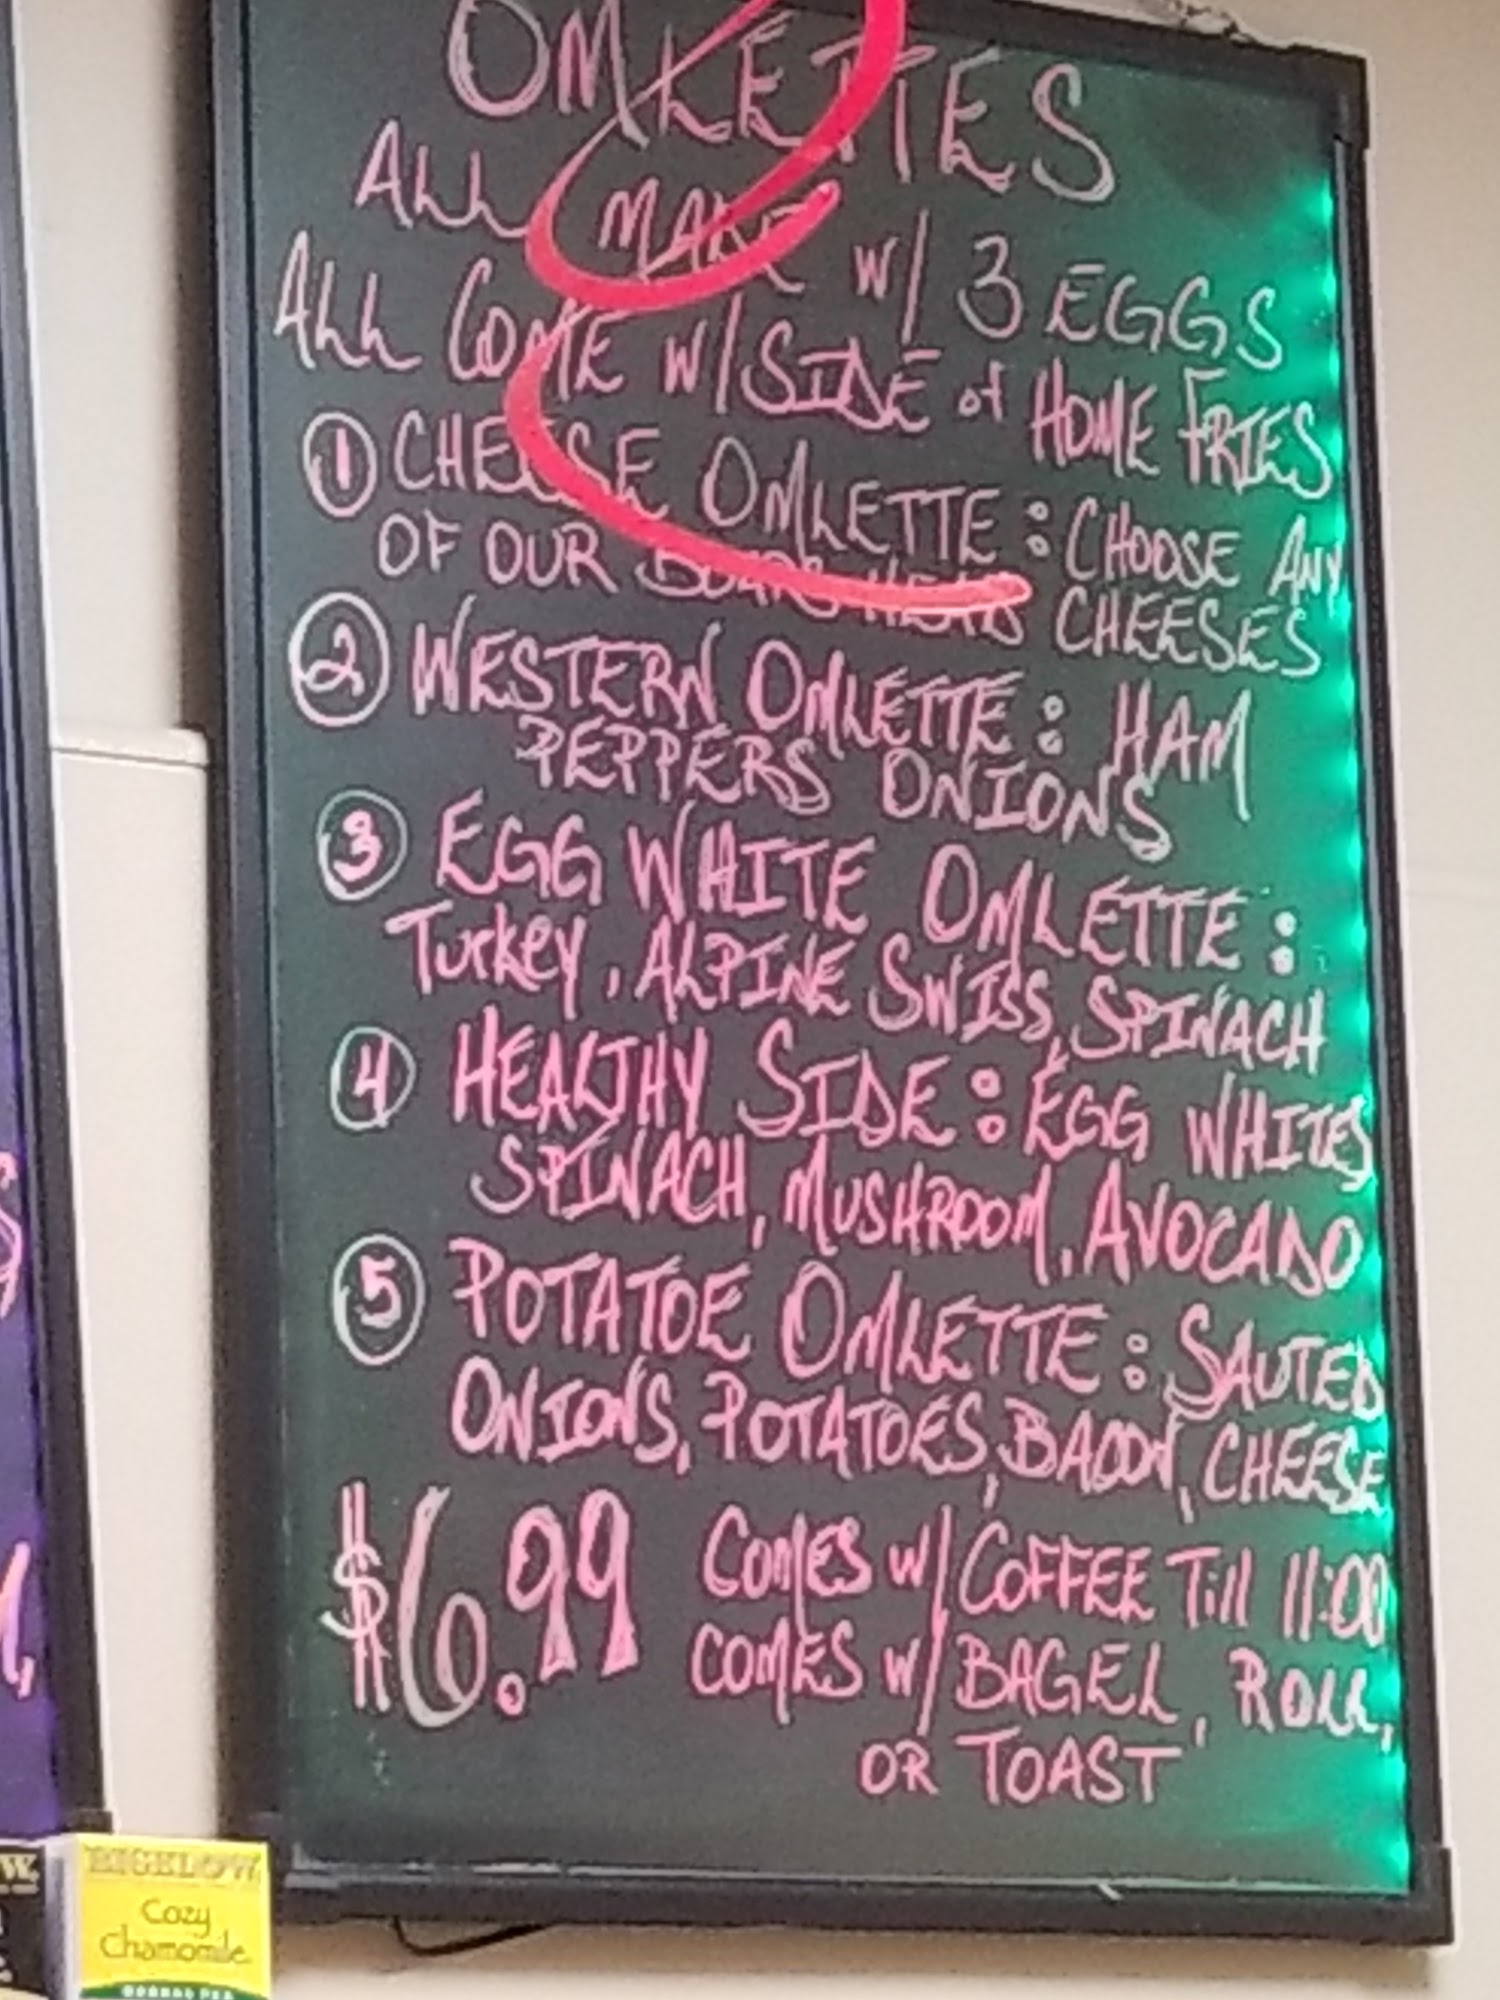 OMLETTES
ALL MAKE W/ 3 EGGS
ALL COME W/ SIDE of HOME FRIES
① CHEESE OMLETTE : CHOOSE ANY
OF OUR BOARS HEAD CHEESES
② WESTERN OMLETTE : HAM
PEPPERS ONIONS
③ EGG WHITE OMLETTE :
Turkey, ALPINE SWISS, SPINACH
④ HEALTHY SIDE : EGG WHITES
SPINACH, MUSHROOM, AVOCADO
⑤ POTATOE OMLETTE : SAUTED
ONIONS, POTATOES, BACON, CHEESE
$6.99 COMES W/ COFFEE Till 11:00
COMES W/ BAGEL, ROLL,
OR TOAST
BIGELOW
Cozy
Chamomile